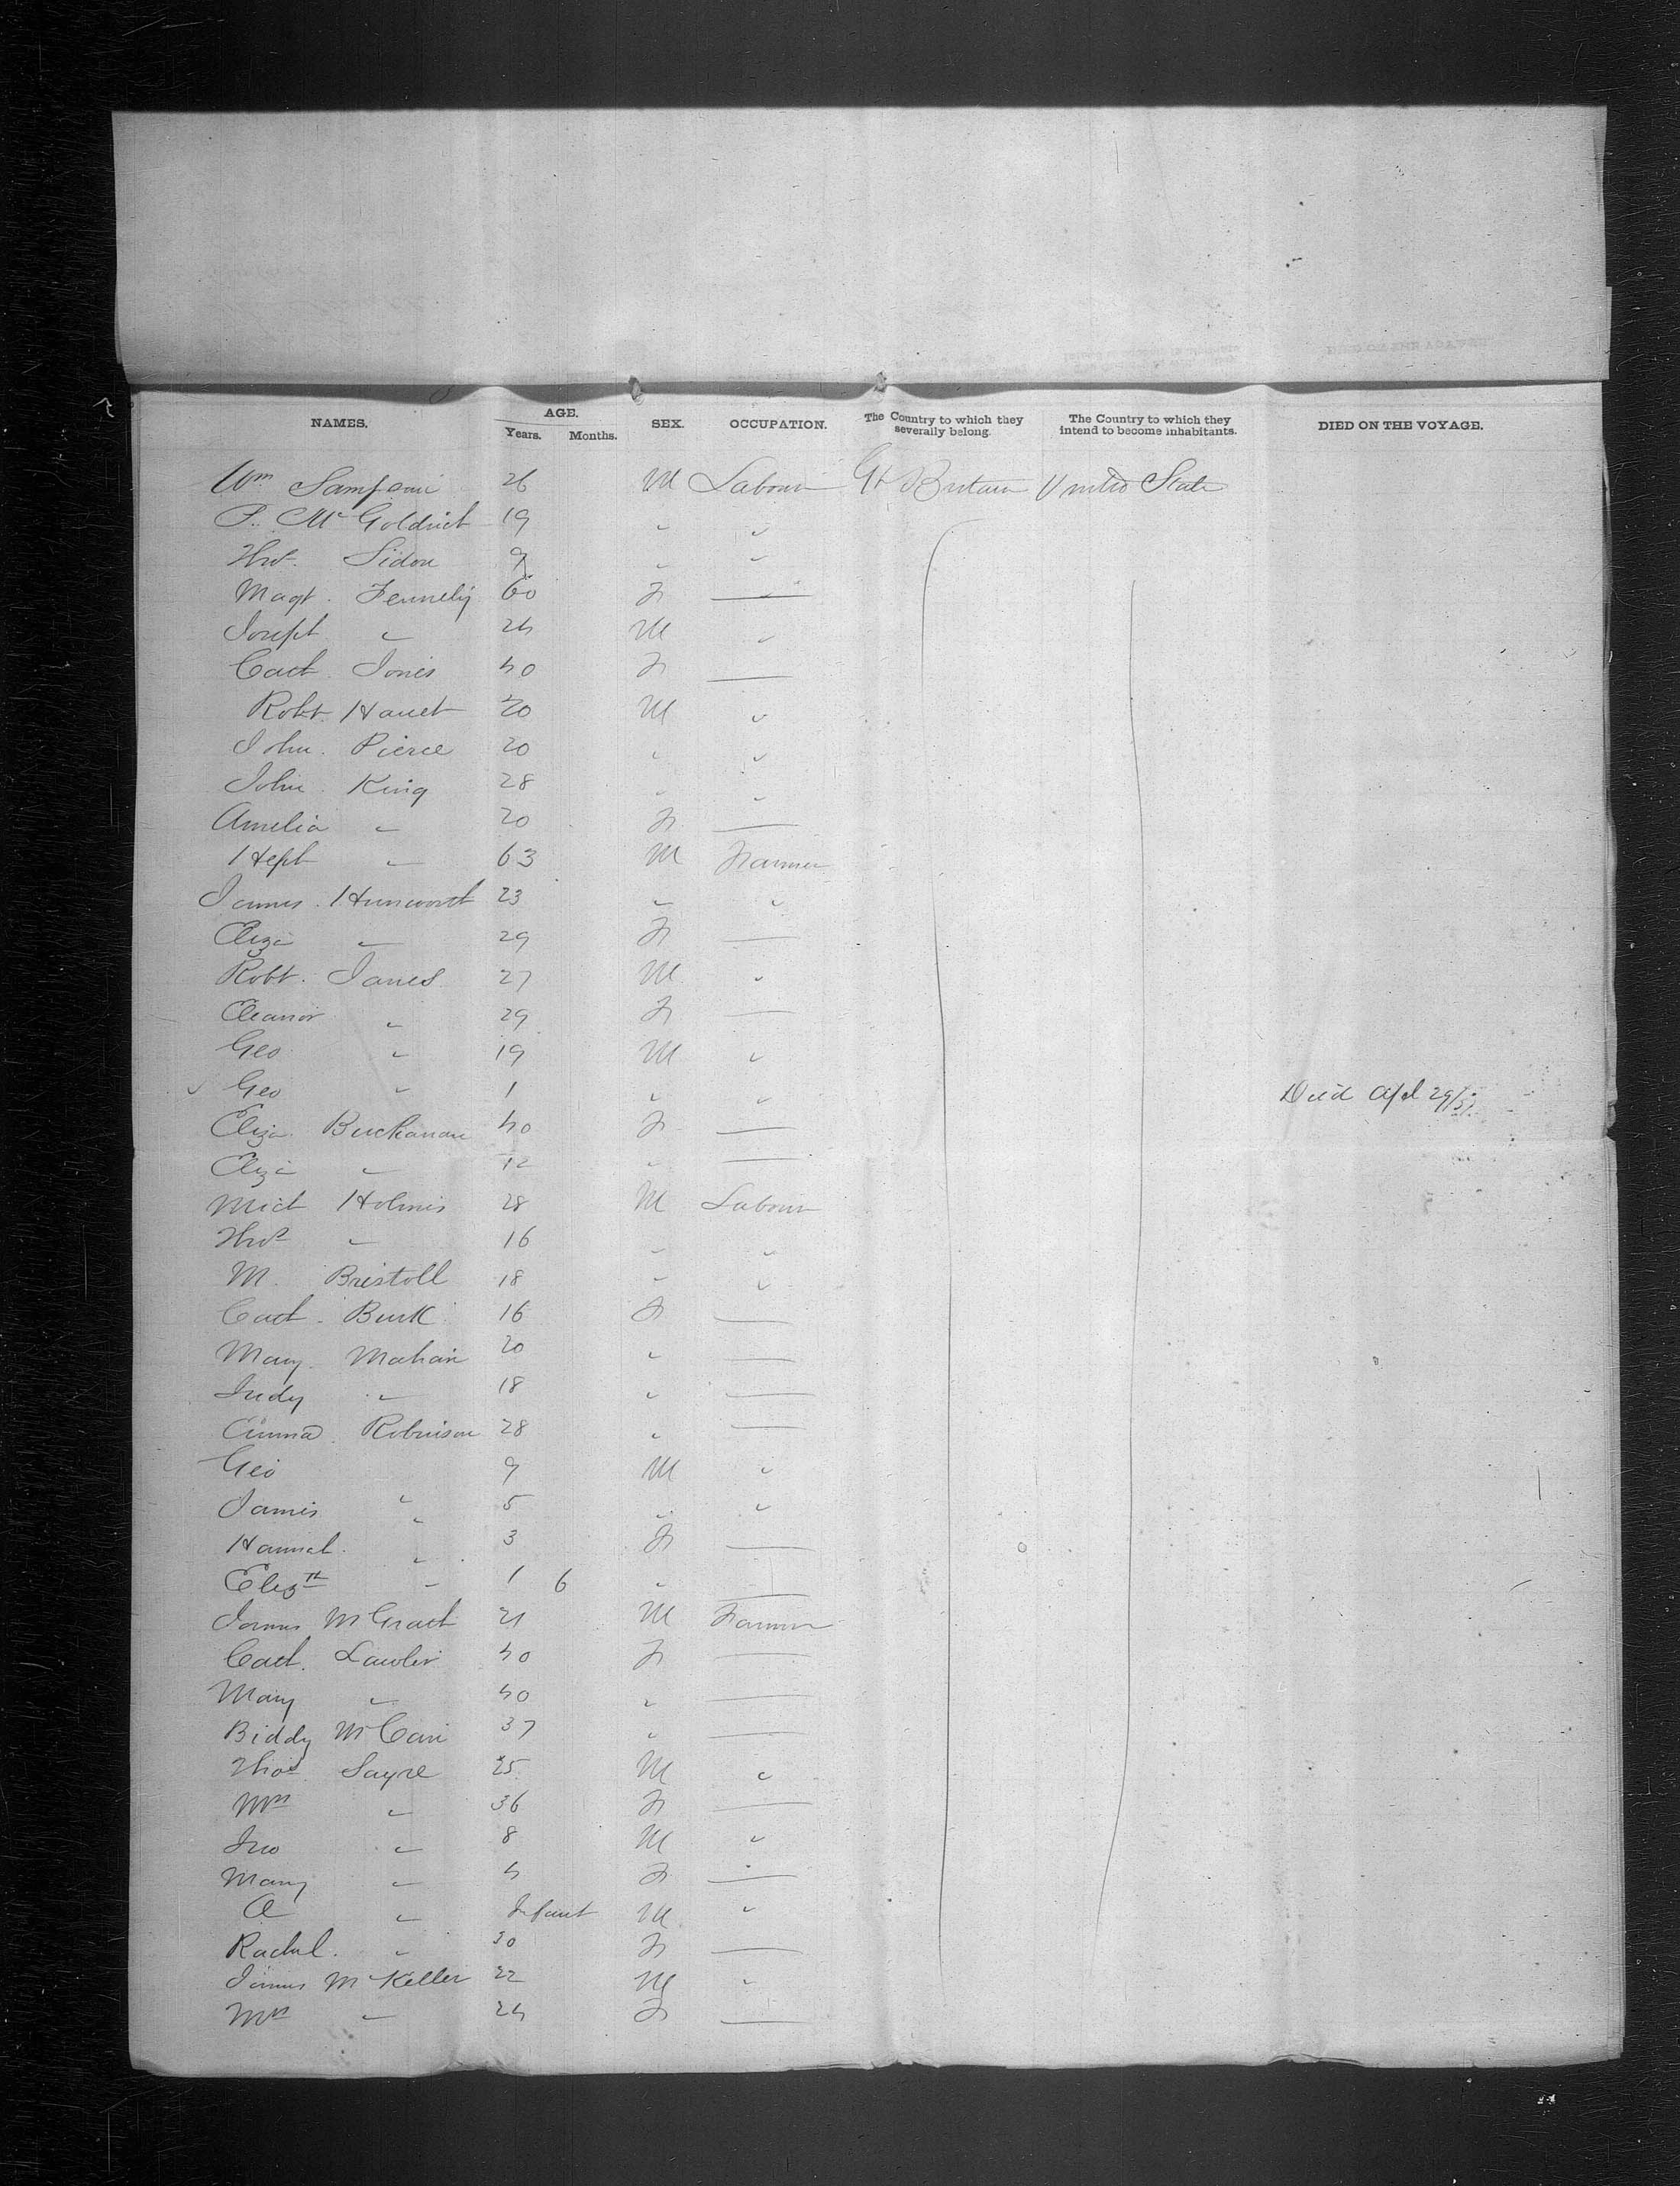 NAMES. AGE. Years. Months. SEX. OCCUPATION. The Country to which they severally belong. The Country to which they intend to become inhabitants. DIED ON THE VOYAGE.
Wm 26 M Labour Gt Britain United State
P. McGoldrick 19 " "
Thos. 9 " "
Magt. Fennelly 60 F —
Joseph " 24 M "
Cath. Jones 40 F —
Robt. 20 M "
John. Pierce 20 " "
John. King 28 " "
Amelia " 20 F —
" 63 M Farmer
James. 23 " "
Eliza " 29 F —
Robt. James 27 M "
Eleanor " 29 F —
Geo " 19 M "
Geo " 1 " " Died Apl 29/
Eliza. Buchanan 40 F —
Eliza " 12 " —
Mich Holmes 28 M Labour
Thos " 16 " "
M. Bristoll 18 " "
Cath. Burk 16 F —
Mary. Mahan 20 " —
Judy " 18 " —
Emma. Robinson 28 " —
Geo " 9 M "
James " 5 " "
Hannah. " 3 F —
Elizth " 1 6 " —
James McGrath 21 M Farmer
Cath. Lawler 40 F —
Mary " 40 " —
Biddy McCan 37 " —
Thos Sayre 25 M "
Mrs " 36 F —
Jno " 8 M "
Mary " 4 F —
A " Infant M "
Rachel. " 30 F —
James McKeller 22 M "
Mrs " 24 F —